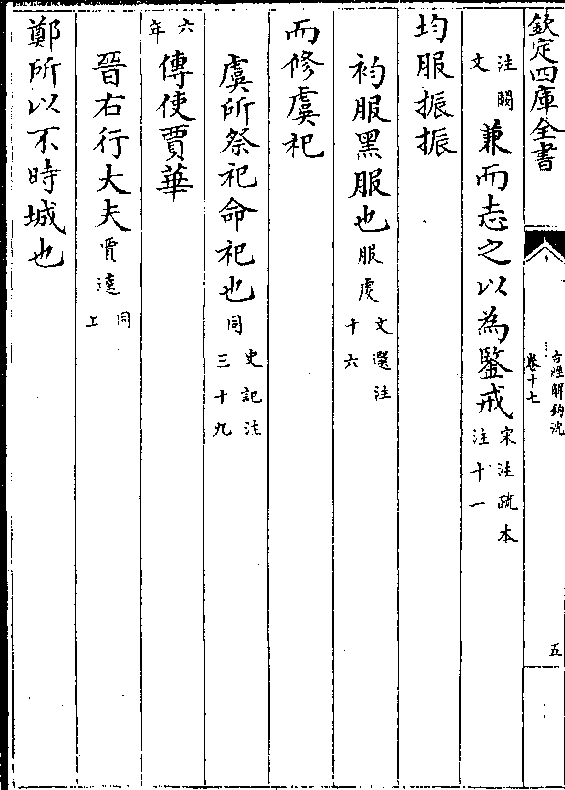 欽定四庫全書
古經解鉤沈
卷十七
五
注闕文兼而志之以為鑒戒宋注疏本注十一
均服振振
袀服黑服也服虔文選注十六
而修虞祀
虞所祭祀命祀也同史記注三十九
六年傳使賈華
晉右行大夫賈逵同上
鄭所以不時城也